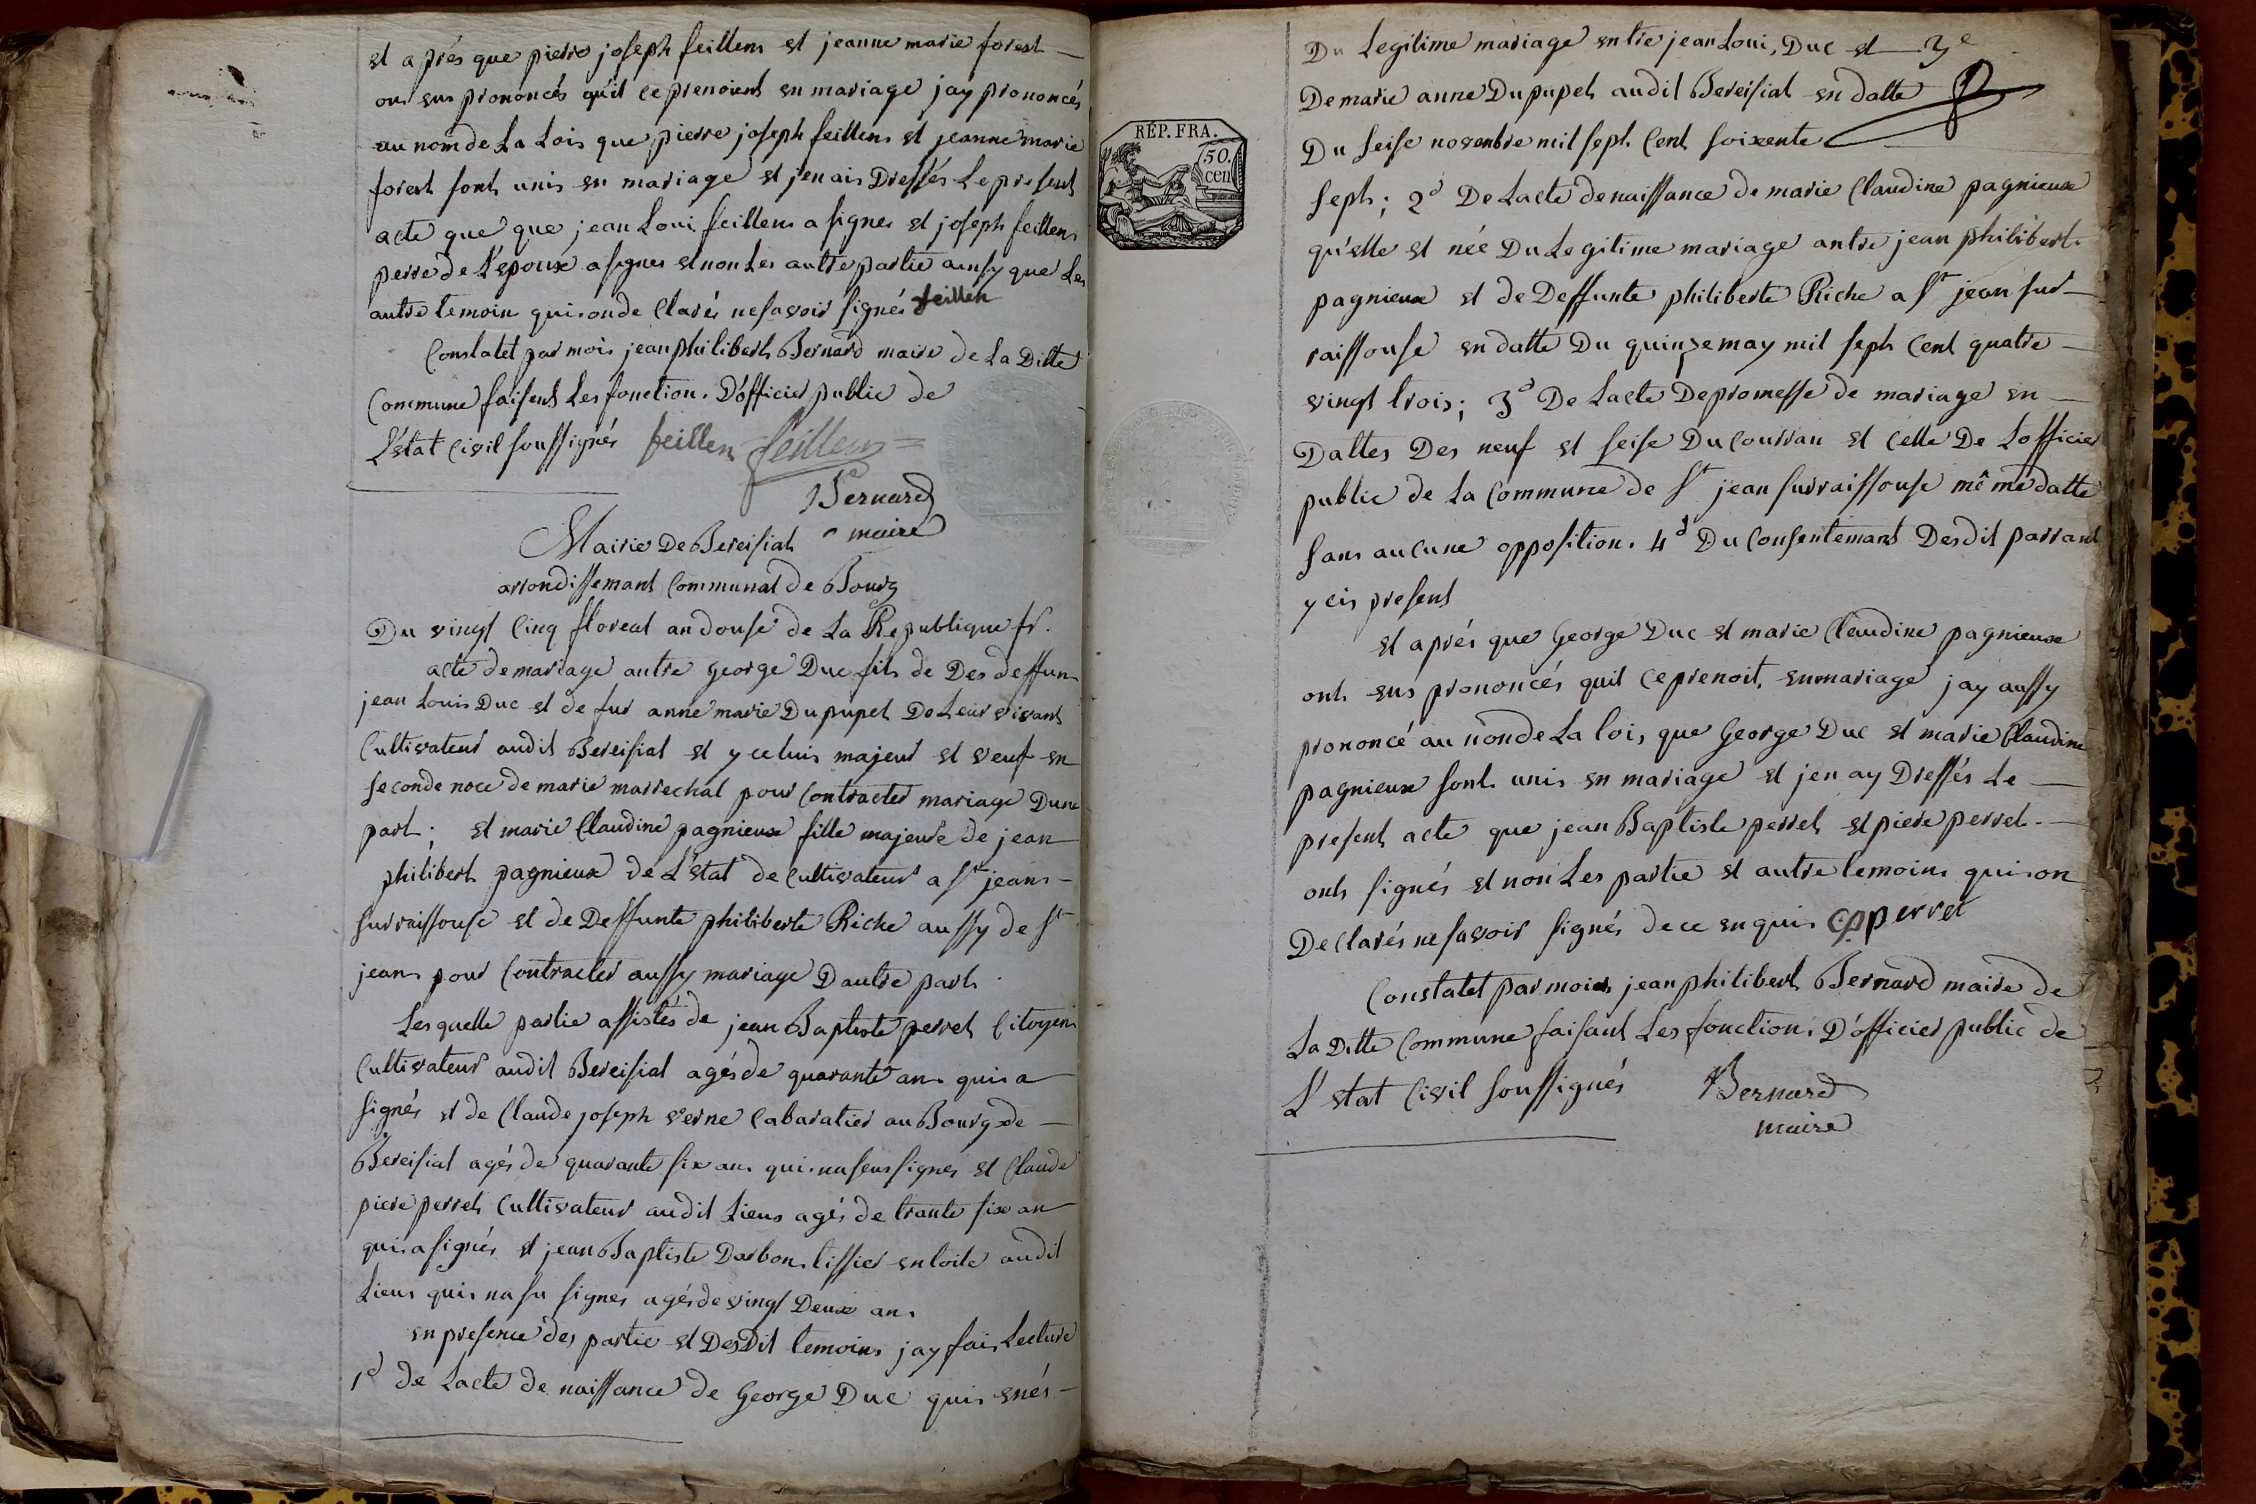 et après que pierre joseph feillens et jeanne marie forest
ons eus prononcés qu'il ce prenoient en mariage jay prononcés
au nom de La Lois que pierre joseph feillens et jeanne marie
forest sont unis en mariage et jen ais Dressés Le present
acte que que jean Loui feillens a signes et joseph feillens
perre de L'epoux a signes et non Les autre partie ainsy que Les
autre temoin quis on de Clarés ne savoir signés feillen
Constatet par mois jean philibert Bernard maire de La Ditte
Commune faisent Les fonction D'officier public de
L'état Civil soussignés feillen feillens
Bernard
maire
Mairie De Bereisiat
arrondissemant Communal de Bourg
Du vingt Cinq floreal an douse de La Republique fr.
acte de mariage autre George Duc fils de Des deffun
jean Louis Duc et de fur anne marie Dupupet De Leur vivant
Cultivateur audit Bereisiat et y celuis majeur et veuf en
seconde noce de marie marrechal pour Contracter mariage Dune
part; et marie Claudine pagnieux fille majeure de jean
philibert pagnieux de L'état de Cultivateur a St jean
surraissouse et de Deffunte philiberte Riche aussy de St
jean pour Contracter aussy mariage Dautre part.
Lesquelle partie assistés de jean Baptiste perret Citoyen
Cultivateur audit Bereisiat agés de quarante an quis a
signés et de Claude joseph verne Cabaratier au Bourg de
Bereisiat agés de quarante six an quis na seus signes et Claude
piere perret Cultivateur audit Lieux agés de trante six an
quis a signés et jean Baptiste Darbon tissier en toile audit
Lieux quis na su signes agés de vingt Deux an
en presence des partie et Desdit temoins jay fais Lecture
1d de Lacte de naissance de George Duc quis enés
Du Legitime mariage entre jean Loui, Duc et 3e
De marie anne Dupupet audit Bereisiat en datte
Du seise novenbre mil sept Cent soixente
sept; 2d De Lacte de naissance de marie Claudine pagnieux
qu'elle et née Du Legitime mariage antre jean philibert
pagnieux et de Deffunte philiberte Riche a St jean sur
raissouse en datte Du quinze may mil sept Cent quatre
vingt trois; 3d De Lacte De promesse de mariage en
Dattes Des neuf et seise Du Courran et Celle De Lofficier
public de La Commune de St jean surraissouse même datte
sans aucune opposition. 4d Du Consentemant Desdit parrant
y cis present
et après que George Duc et marie Claudine pagnieux
onts eus prononcés quil ce prenoit, en mariage jay aussy
prononcé au nom de La lois, que George Duc et marie Claudine
pagnieux sont unis en mariage et jen ay Dressés Le
present acte que jean Baptiste perret et piere perret
onts signés et non Les partie et autre temoins quis on
De Clarés ne savoir signés de ce enquis cpperret
Constatet par mois jean philibert Bernard maire de
La Ditte Commune faisant Les fonction D'officier public de
L'état Civil soussignés Bernard
maire
RÉP. FRA.
50.
cen